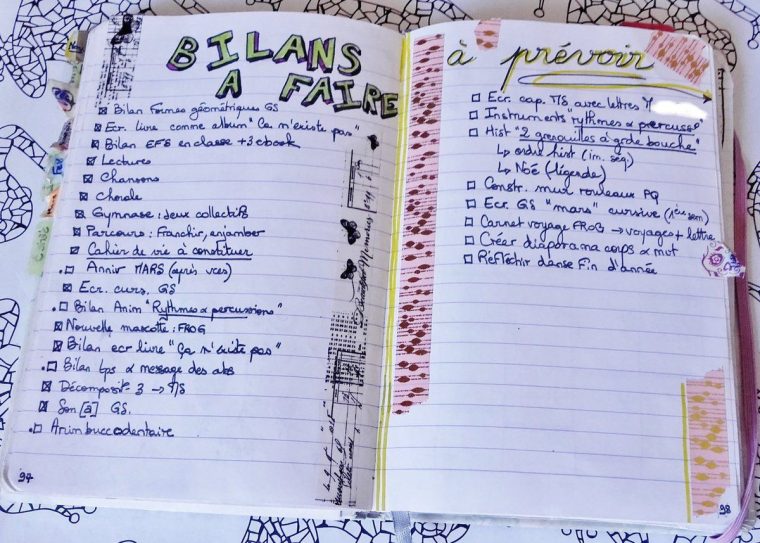 BILANS
A FAIRE
Bilan Formes géométriques GS
Ecr livre comme album "Ca n'existe pas"
Bilan EFS en classe + 3 ebook
Lectures
Chansons
Chorale
Gymnase : jeux collectifs
Parcours : Franchir, enjamber
Cahier de vie à constituer
Anniv MARS (après vces)
Ecr. curs. GS
Bilan Anim "Rythmes & percussions"
Nouvelle mascotte : FROG
Bilan ecr livre "Ça n'existe pas"
Bilan tps & message des abs
Décomposit° 3 →
Son [a] GS.
Anim buccodentaire
97
à prévoir
Ecr. cap. MS avec lettres
Instruments "rythmes & percuss°"
Hist "2 grenouilles à grde bouche"
↳ ordre hist (im. séq)
↳ Noé (légende)
Constr. mur rouleaux PQ
Ecr. GS "mars" cursive (1ère sem)
Carnet voyage FROG → voyages + lettre
Créer diaporama corps & mvt
Réfléchir danse Fin d'année
98